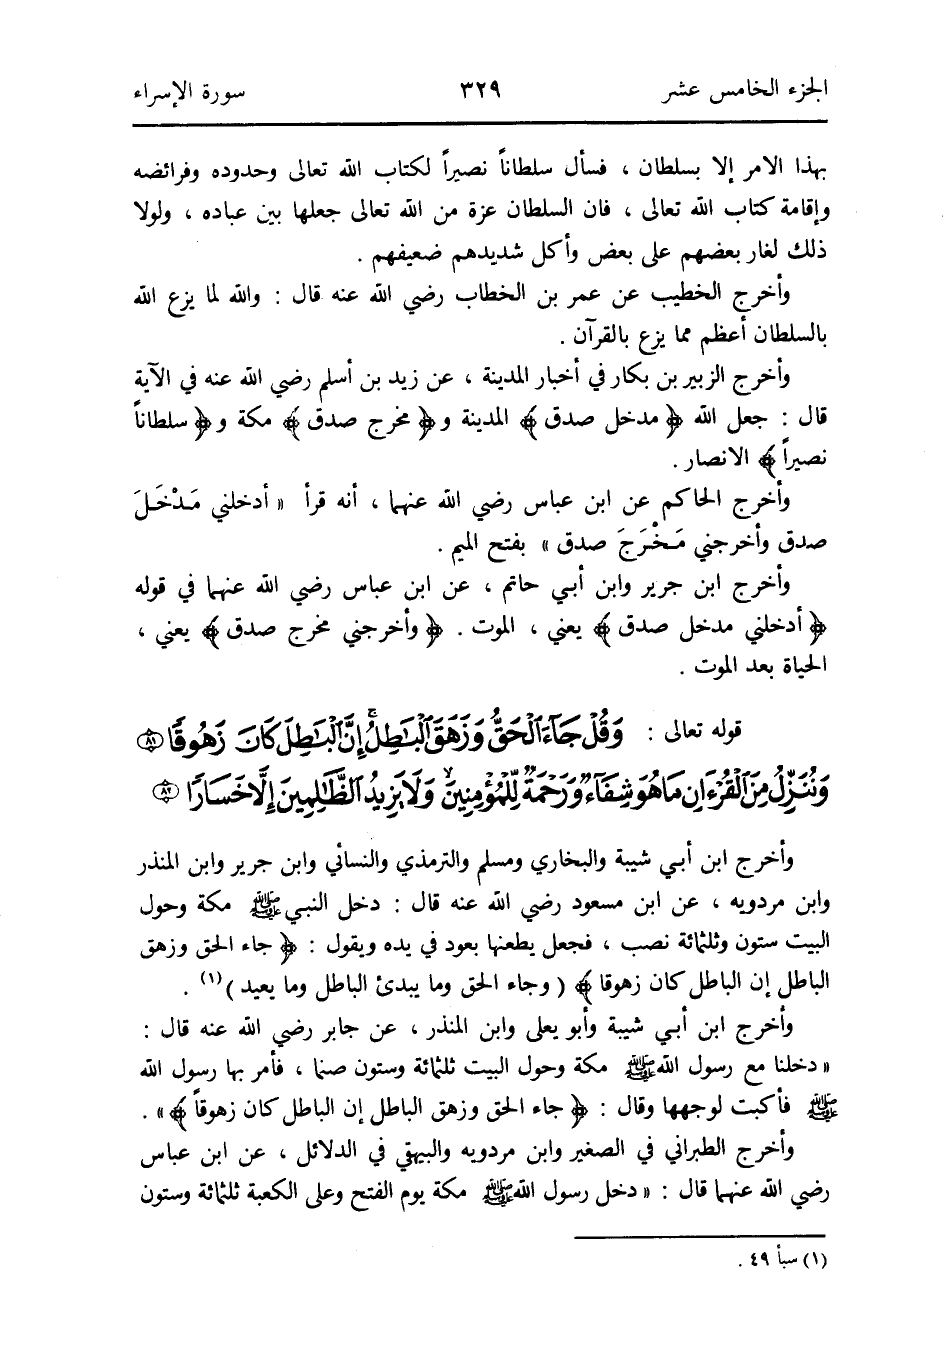 الجزء الخامس عشر ٣٢٩ سورة الإسراء
بهذا الامر إلا بسلطان ، فسأل سلطاناً نصيراً لكتاب الله تعالى وحدوده وفرائضه
وإقامة كتاب الله تعالى ، فان السلطان عزة من الله تعالى جعلها بين عباده ، ولولا
ذلك لغار بعضهم على بعض وأكل شديدهم ضعيفهم .
وأخرج الخطيب عن عمر بن الخطاب رضي الله عنه قال : والله لما يزع الله
بالسلطان أعظم مما يزع بالقرآن .
وأخرج الزبير بن بكار في أخبار المدينة ، عن زيد بن أسلم رضي الله عنه في الآية
قال : جعل الله ﴿ مدخل صدق ﴾ المدينة و﴿ مخرج صدق ﴾ مكة و﴿ سلطاناً
نصيراً ﴾ الانصار .
وأخرج الحاكم عن ابن عباس رضي الله عنهما ، أنه قرأ « أدخلني مَدْخَلَ
صدق وأخرجني مَخْرَجَ صدق » بفتح الميم .
وأخرج ابن جرير وابن أبي حاتم ، عن ابن عباس رضي الله عنهما في قوله
﴿ أدخلني مدخل صدق ﴾ يعني ، الموت . ﴿ وأخرجني مخرج صدق ﴾ يعني ،
الحياة بعد الموت .
قوله تعالى : وَقُلْ جَآءَ ٱلْحَقُّ وَزَهَقَ ٱلْبَٰطِلُ ۚ إِنَّ ٱلْبَٰطِلَ كَانَ زَهُوقًا ٨١
وَنُنَزِّلُ مِنَ ٱلْقُرْءَانِ مَا هُوَ شِفَآءٌ وَرَحْمَةٌ لِّلْمُؤْمِنِينَ ۙ وَلَا يَزِيدُ ٱلظَّٰلِمِينَ إِلَّا خَسَارًا ٨٢
وأخرج ابن أبي شيبة والبخاري ومسلم والترمذي والنسائي وابن جرير وابن المنذر
وابن مردويه ، عن ابن مسعود رضي الله عنه قال : دخل النبي ﷺ مكة وحول
البيت ستون وثلثمائة نصب ، فجعل يطعنها بعود في يده ويقول : ﴿ جاء الحق وزهق
الباطل إن الباطل كان زهوقا ﴾ ( وجاء الحق وما يبدئ الباطل وما يعيد )(١) .
وأخرج ابن أبي شيبة وأبو يعلى وابن المنذر ، عن جابر رضي الله عنه قال :
« دخلنا مع رسول الله ﷺ مكة وحول البيت ثلثمائة وستون صنما ، فأمر بها رسول الله
ﷺ فأكبت لوجهها وقال : ﴿ جاء الحق وزهق الباطل إن الباطل كان زهوقاً ﴾» .
وأخرج الطبراني في الصغير وابن مردويه والبيهقي في الدلائل ، عن ابن عباس
رضي الله عنهما قال : « دخل رسول الله ﷺ مكة يوم الفتح وعلى الكعبة ثلثمائة وستون
(١) سبأ ٤٩ .